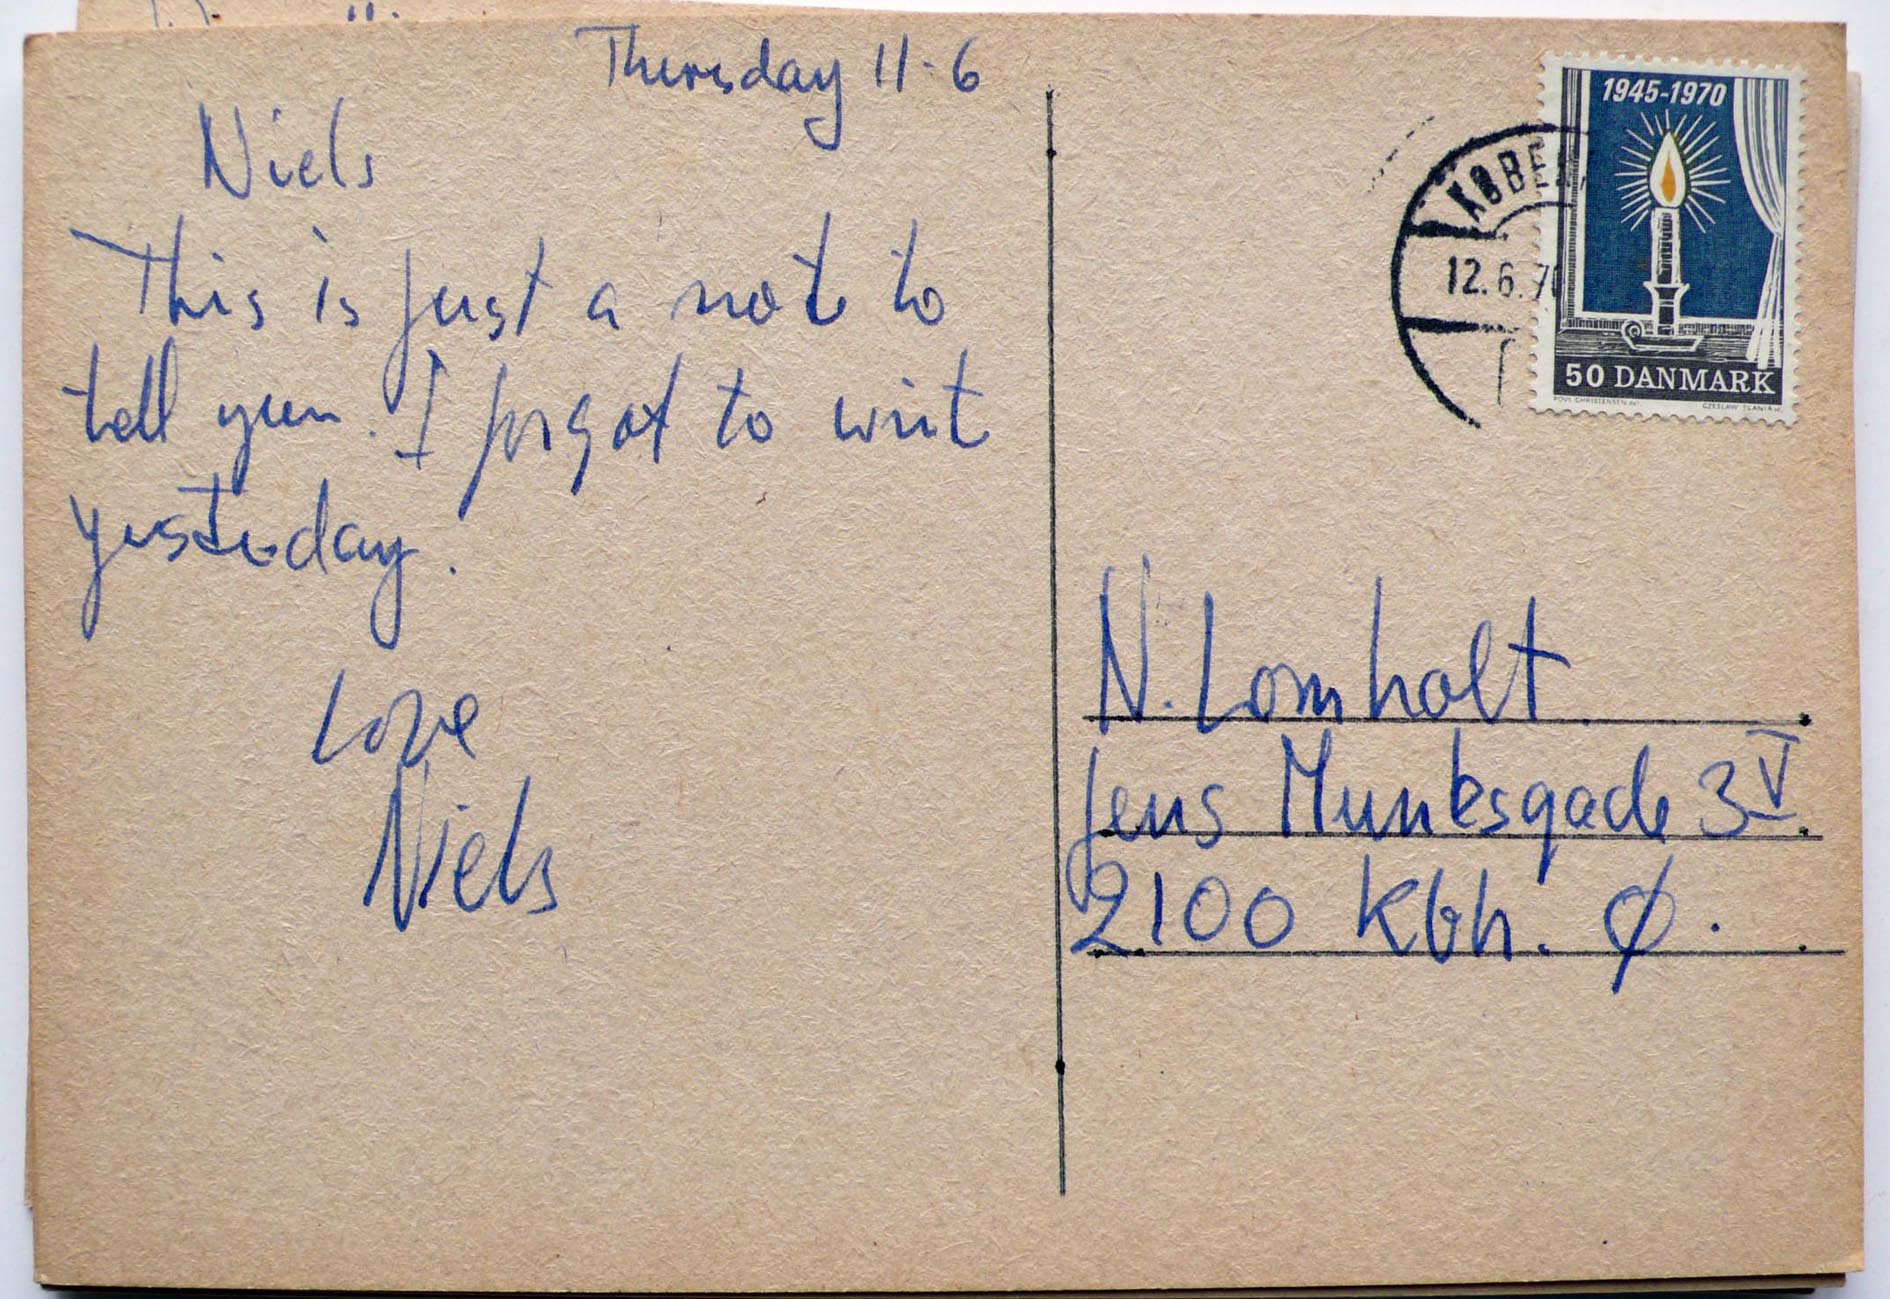 Thursday 11-6
Niels
This is just a not to
tell you. I forgot to writ
yesterday.
Love
Niels
KØBEN
12.6.70
1945-1970
50 DANMARK
POVL CHRISTENSEN del.
CZESLAW SLANIA sc.
N. Lomholt
Jens Munksgade 3 V.
2100 Kbh. Ø.